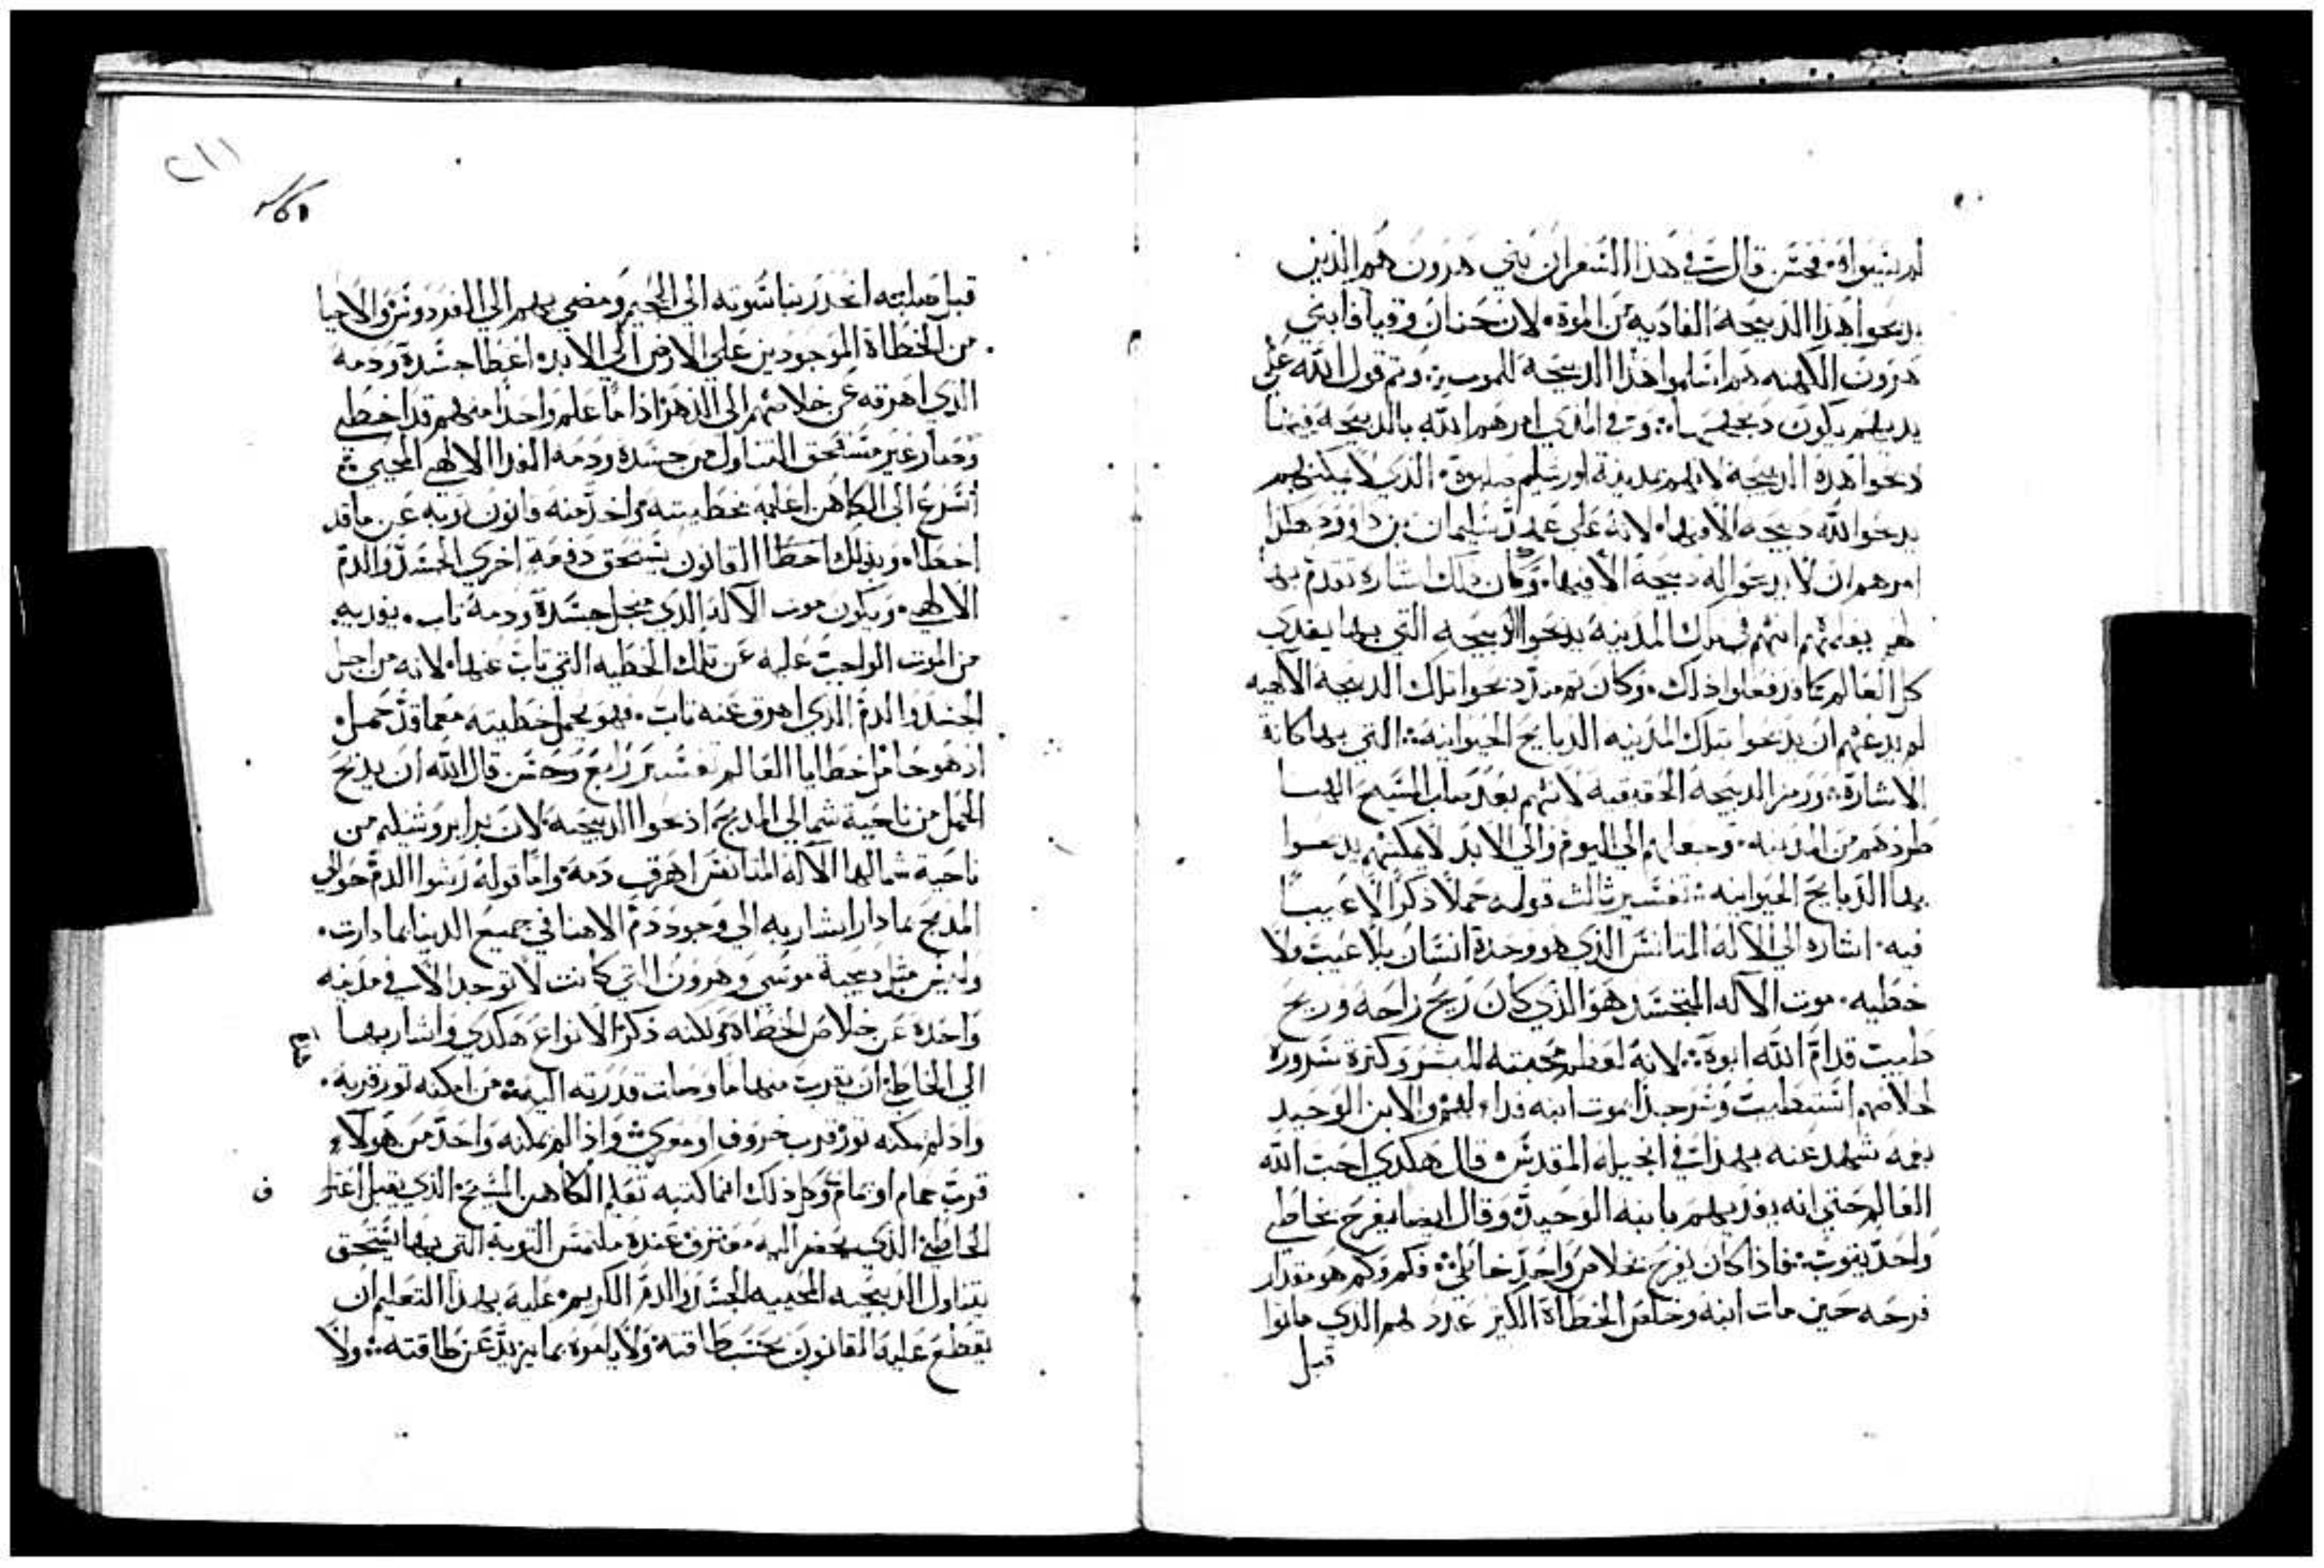 لم ينسواه فحسن قال في هذا السفر ان بني هرون هم الذين
يدبحوا هذا الدبيحة الفاديه من الموت لان حنان وقيافا بني
هرون الكهنه هم اسلموا هذا الدبيحة للموت وتم قول الله علي
يديهم يكون دبحها الذي امرهم الله بالدبيحة فيها
دبحوا هذه الدبيحه لانهم بمدينة اورشليم صلبوه الذي لا يمكنهم
يدبحوا لله دبيحه الا فيها لانه علي عهد سليمان بن داوود هكذا
امرهم ان لا يدبحوا له دبيحة الا فيها وكان ذلك اشاره تقدم بها
يعلمهم انهم في تلك المدينة يدبحوا الدبيحه التي بها يفدي
كل العالم فعلوا ذلك وكان دبحوا تلك الدبيحه الالاهيه
لم يدعهم ان يدبحوا بتلك المدينه الدبايح الحيوانيه التي بها كانة
الاشارة ورمز الدبيحة الحقيقيه لانهم بعد صلب المسيح الهنا
طردهم من المدينه وجعلهم الي اليوم والي الابد لا يمكنهم يدبحوا
بها الدبايح الحيوانيه تفسير ثالث قوله حملا ذكرا لا عيبا
فيه اشاره الي الاله المتانس الذي هو وحدة انسان بلا عيب ولا
خطيه موت الاله المتجسد هو الذي كان ريح راحه وريح
طيبت قدام الله ابوه لانه لعظم محبته للبشر وكترة سروره
لخلاصهم استطيب وسر جدا بموت ابنه فداء لهم والابن الوحيد
بفمه شهد عنه بهذا في انجيله المقدس قال هكدي احب الله
العالم حتي انه يفديهم بابنه الوحيد وقال ايضا يفرح بخاطي
واحد يتوب فاذا كان يفرح بخلاص واحد خاطي فكم وكم هو مقدار
فرحه حين مات ابنه وخلص الخطاة الكتير عدد لهم الذي ماتوا
قبل
٢١١
قبل صلبته انحدر بناسوته الي الجحيم ومضي بهم الي الفردوس والاحيا
من الخطاة الموجودين علي الارض الي الابد اعطا جسده ودمه
الذي اهرقه عن خلاصهم الي الدهر اذا ما علم واحدا منهم قد اخطي
وصار غير مستحق التناول من جسده ودمه الفدا الالهي المحيي
اسرع الي الكاهن اعلمه بخطيته واخد منه قانون توبه عن ما قد
اخطاه وبذلك اخطا القانون يستحق دفعة اخري الجسد والدم
الالاهي ويكون موت الاله الذي جسده ودمه ناب يفديه
من الموت الواجب عليه عن تلك الخطيه التي تاب عنها لانه من اجل
الجسد والدم الذي اهرق عنه تاب فهو يحمل خطيته معما قد حمل
اد هو حامل خطايا العالم تفسير رابع وحسن قال الله ان يدبح
الحمل من ناحية شمالي المدبح اذبحوا الدبيحه لان برا يروشليم من
ناحية شمالها الاله المتانس اهرق دمه واما قوله رشوا الدم حوالي
المدبح بما دار اشار به الي وجود دم الاهنا في جميع الدنيا بما دارت
وليس مثل دبيحة موسي وهرون التي كانت لا توجد الا في مدينه
واحدة عن خلاص الخطاه ولكنه ذكر الانواع هكدي واشار بها
الي الخاطي ان يقرب منها ما وصلت قدرته اليه من امكنه تور قربه
واد لم يمكنه تور قرب خروف او معزي واذا لم يمكنه واحد من هولاء
قرب حمام او يمام وكل ذلك انما كتبه تعليم الكاهن المسيحي الذي يقبل اعتراف
الخاطي الذي يحضر اليه معترف عنده ملتمس التوبه التي بها يستحق
يتناول الدبيحه المحييه الجسد والدم الكريم عليه بهذا التعليم ان
يقطع عليه القانون بحسب طاقته ولا يامره بما يزيد عن طاقته ولا